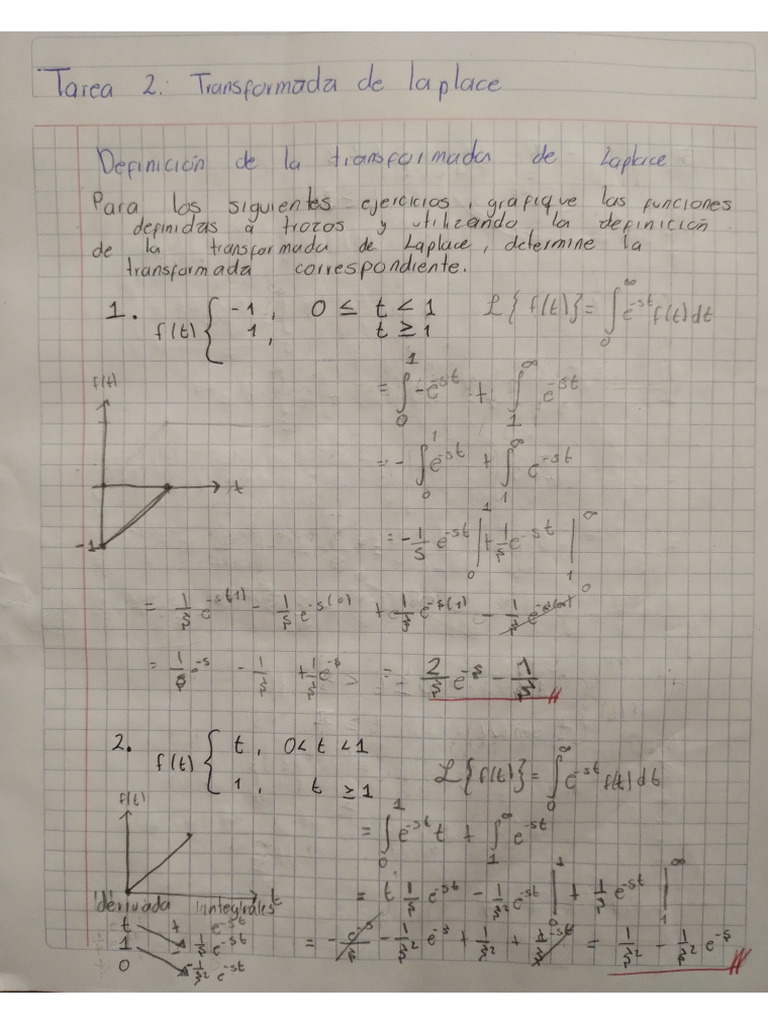 Tarea 2: Transformada de laplace
Definición de la transformada de Laplace
Para los siguientes ejercicios, grafique las funciones
definidas a trozos y utilizando la definición
de la transformada de Laplace, determine la
transformada correspondiente.
1. f(t) { -1, 0 ≤ t < 1
1, t ≥ 1
ℒ{f(t)} = ∫₀^∞ e^-st f(t) dt
f(t)
t
-1
= ∫₀¹ -e^-st + ∫₁^∞ e^-st
= - ∫₀¹ e^-st + ∫₁^∞ e^-st
= - 1/s e^-st |₀¹ + 1/s e^-st |₁^∞
= 1/s e^-s(1) - 1/s e^-s(0) + 1/s e^-s(1) - 1/s e^-s(∞) 0
= 1/s e^-s - 1/s + 1/s e^-s = 2/s e^-s - 1/s
2. f(t) { t, 0 < t < 1
1, t ≥ 1
ℒ{f(t)} = ∫₀^∞ e^-st f(t) dt
f(t)
t
= ∫₀¹ e^-st t + ∫₁^∞ e^-st
= t 1/s e^-st - 1/s² e^-st |₀¹ + 1/s e^-st |₁^∞
derivada integrales
t + e^-st
1 - 1/s e^-st
0 - 1/s² e^-st
= - e^-s/s - 1/s² e^-s + 1/s² + 1/s e^-st = 1/s² - 1/s² e^-s